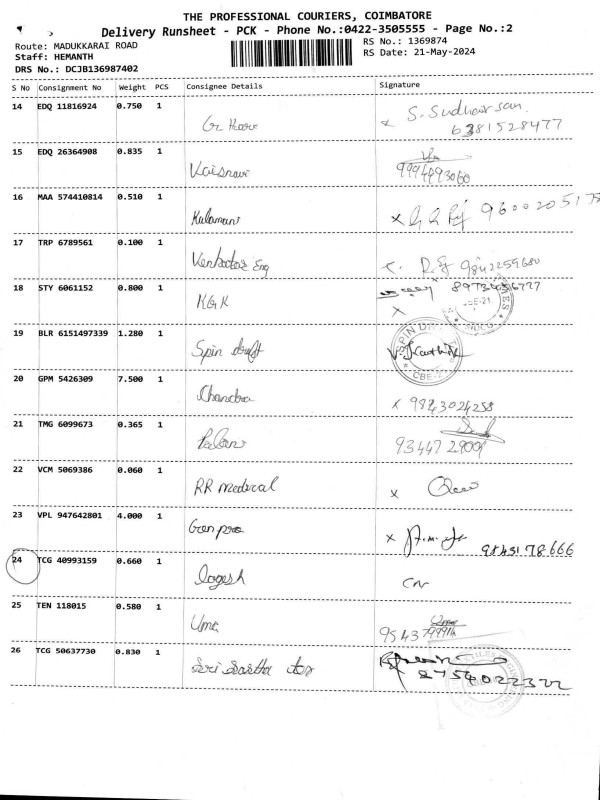 THE PROFESSIONAL COURIERS, COIMBATORE
Delivery Runsheet - PCK - Phone No.:0422-3505555 - Page No.:2
Route: MADUKKARAI ROAD RS No.: 1369874
Staff: HEMANTH RS Date: 21-May-2024
DRS No.: DCJB136987402
S No Consignment No Weight PCS Consignee Details Signature
14 EDQ 11816924 0.750 1 x S. Sudharsan
6381528477
15 EDQ 26364908 0.835 1 Vaisnavi
16 MAA 574410814 0.510 1 x 960020517
17 TRP 6789561 0.100 1 9842259680
18 STY 6061152 0.800 1 KGK
CBE-21
x
19 BLR 6151497339 1.280 1 Spin
SPIN
CBE-2
20 GPM 5426309 7.500 1 Chandra x 9843024258
21 TMG 6099673 0.365 1
22 VCM 5069386 0.060 1 RR medical x
23 VPL 947642801 4.000 1 Gen pro x 98431 78666
24 TCG 40993159 0.660 1 Logesh
25 TEN 118015 0.580 1 Uma Uma
26 TCG 50637730 0.830 1 Sri
8754022322